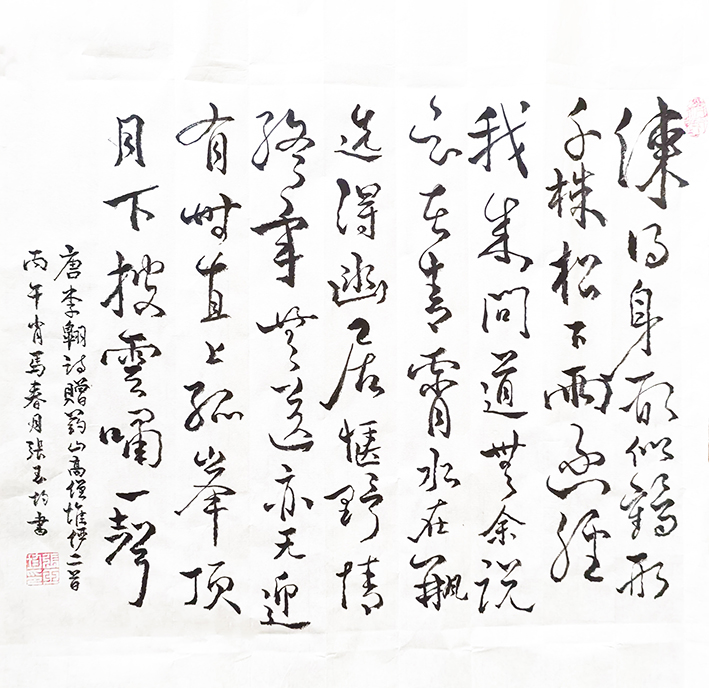 練得身形似鶴形
千株松下兩函經
我来問道無余説
云在青霄水在瓶
选得幽居愜野情
終年無送亦无迎
有時直上孤峯頂
月下披雲嘯一聲
唐李翱诗贈药山高僧惟俨二首
丙午肖馬春月張玉均書